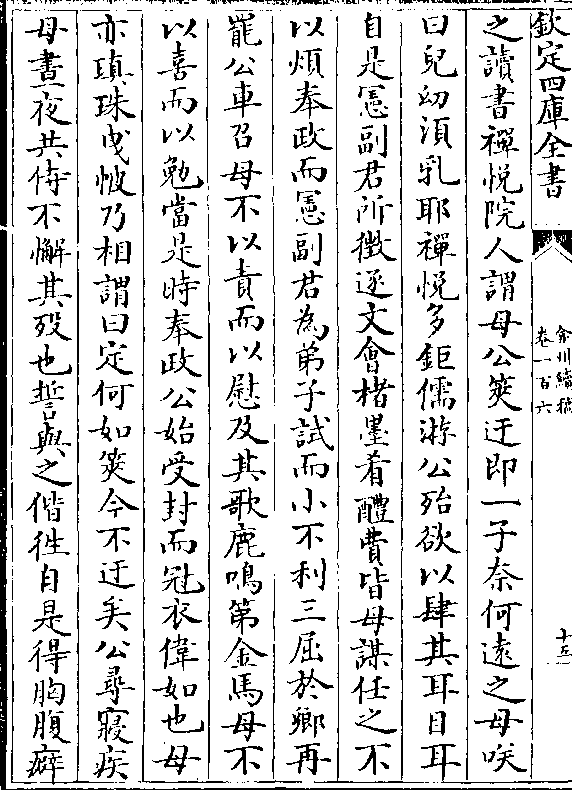 欽定四庫全書
弇州續稿
卷一百六
十五
之讀書禪悅院人謂母公筴迂即一子奈何遠之母咲
曰兒幼須乳耶禪悅多鉅儒游公殆欲以肆其耳目耳
自是憲副君所徵逐文會楮墨肴醴費皆母謀任之不
以煩奉政而憲副君為弟子試而小不利三屈於鄉再
罷公車召母不以責而以慰及其歌鹿鳴第金馬母不
以喜而以勉當是時奉政公始受封而冠衣偉如也母
亦瑱珠曳帔乃相謂曰定何如筴今不迂矣公尋寢疾
母晝夜共侍不懈其歿也誓與之偕徃自是得胸腹癖